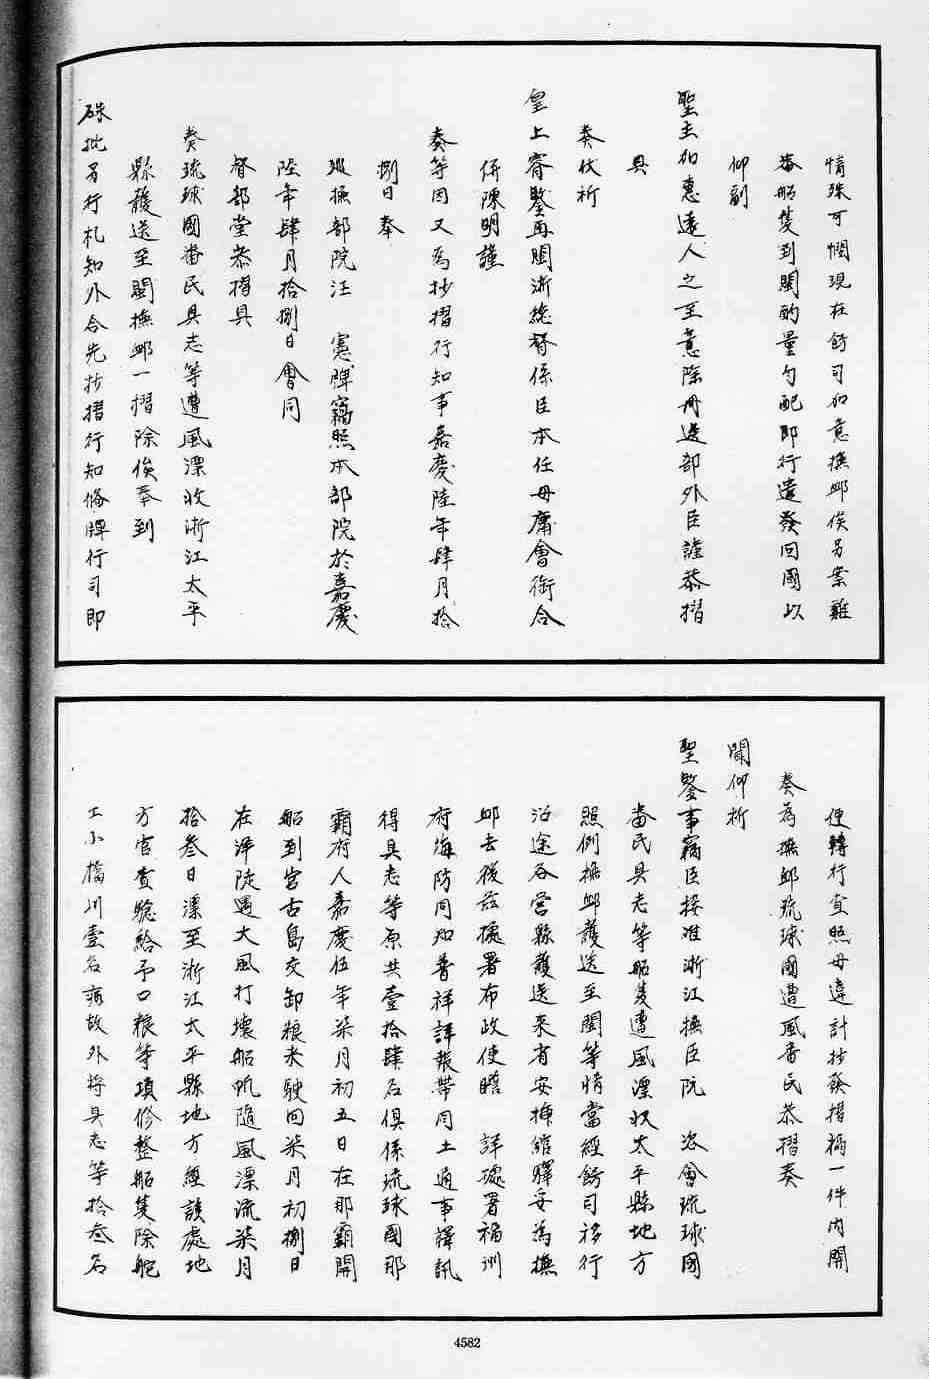 情殊可憫現在飭司加意撫卹俟另案難
番船隻到閩酌量勻配即行遣發回國以
仰副
聖主加惠遠人之至意除冊送部外臣謹恭摺
具
奏伏祈
皇上睿鑒再閩浙總督係臣本任毋庸會銜合
併陳明謹
奏等因又為抄摺行知事嘉慶陸年肆月拾
捌日奉
巡撫部院汪 憲牌竊照本部院於嘉慶
陸年肆月拾捌日會同
督部堂恭摺具
奏琉球國番民具志等遭風漂收浙江太平
縣護送至閩撫卹一摺除俟奉到
硃批另行札知外合先抄摺行知備牌行司即
便轉行查照毋違計抄發摺稿一件內開
奏為撫卹琉球國遭風番民恭摺奏
聞仰祈
聖鑒事竊臣接准浙江撫臣阮 咨會琉球國
番民具志等船隻遭風漂收太平縣地方
照例撫卹護送至閩等情當經飭司移行
沿途各營縣護送來省安插館驛妥為撫
卹去後茲據署布政使瞻 詳據署福州
府海防同知普祥詳報帶同土通事譯訊
得具志等原共壹拾肆名俱係琉球國那
霸府人嘉慶伍年柒月初五日在那霸開
船到宮古島交卸糧米駛回柒月初捌日
在洋陡遇大風打壞船帆隨風漂流柒月
拾叁日漂至浙江太平縣地方經該處地
方官查驗給予口糧等項修整船隻除舵
工小橋川壹名病故外將具志等拾叁名
4582